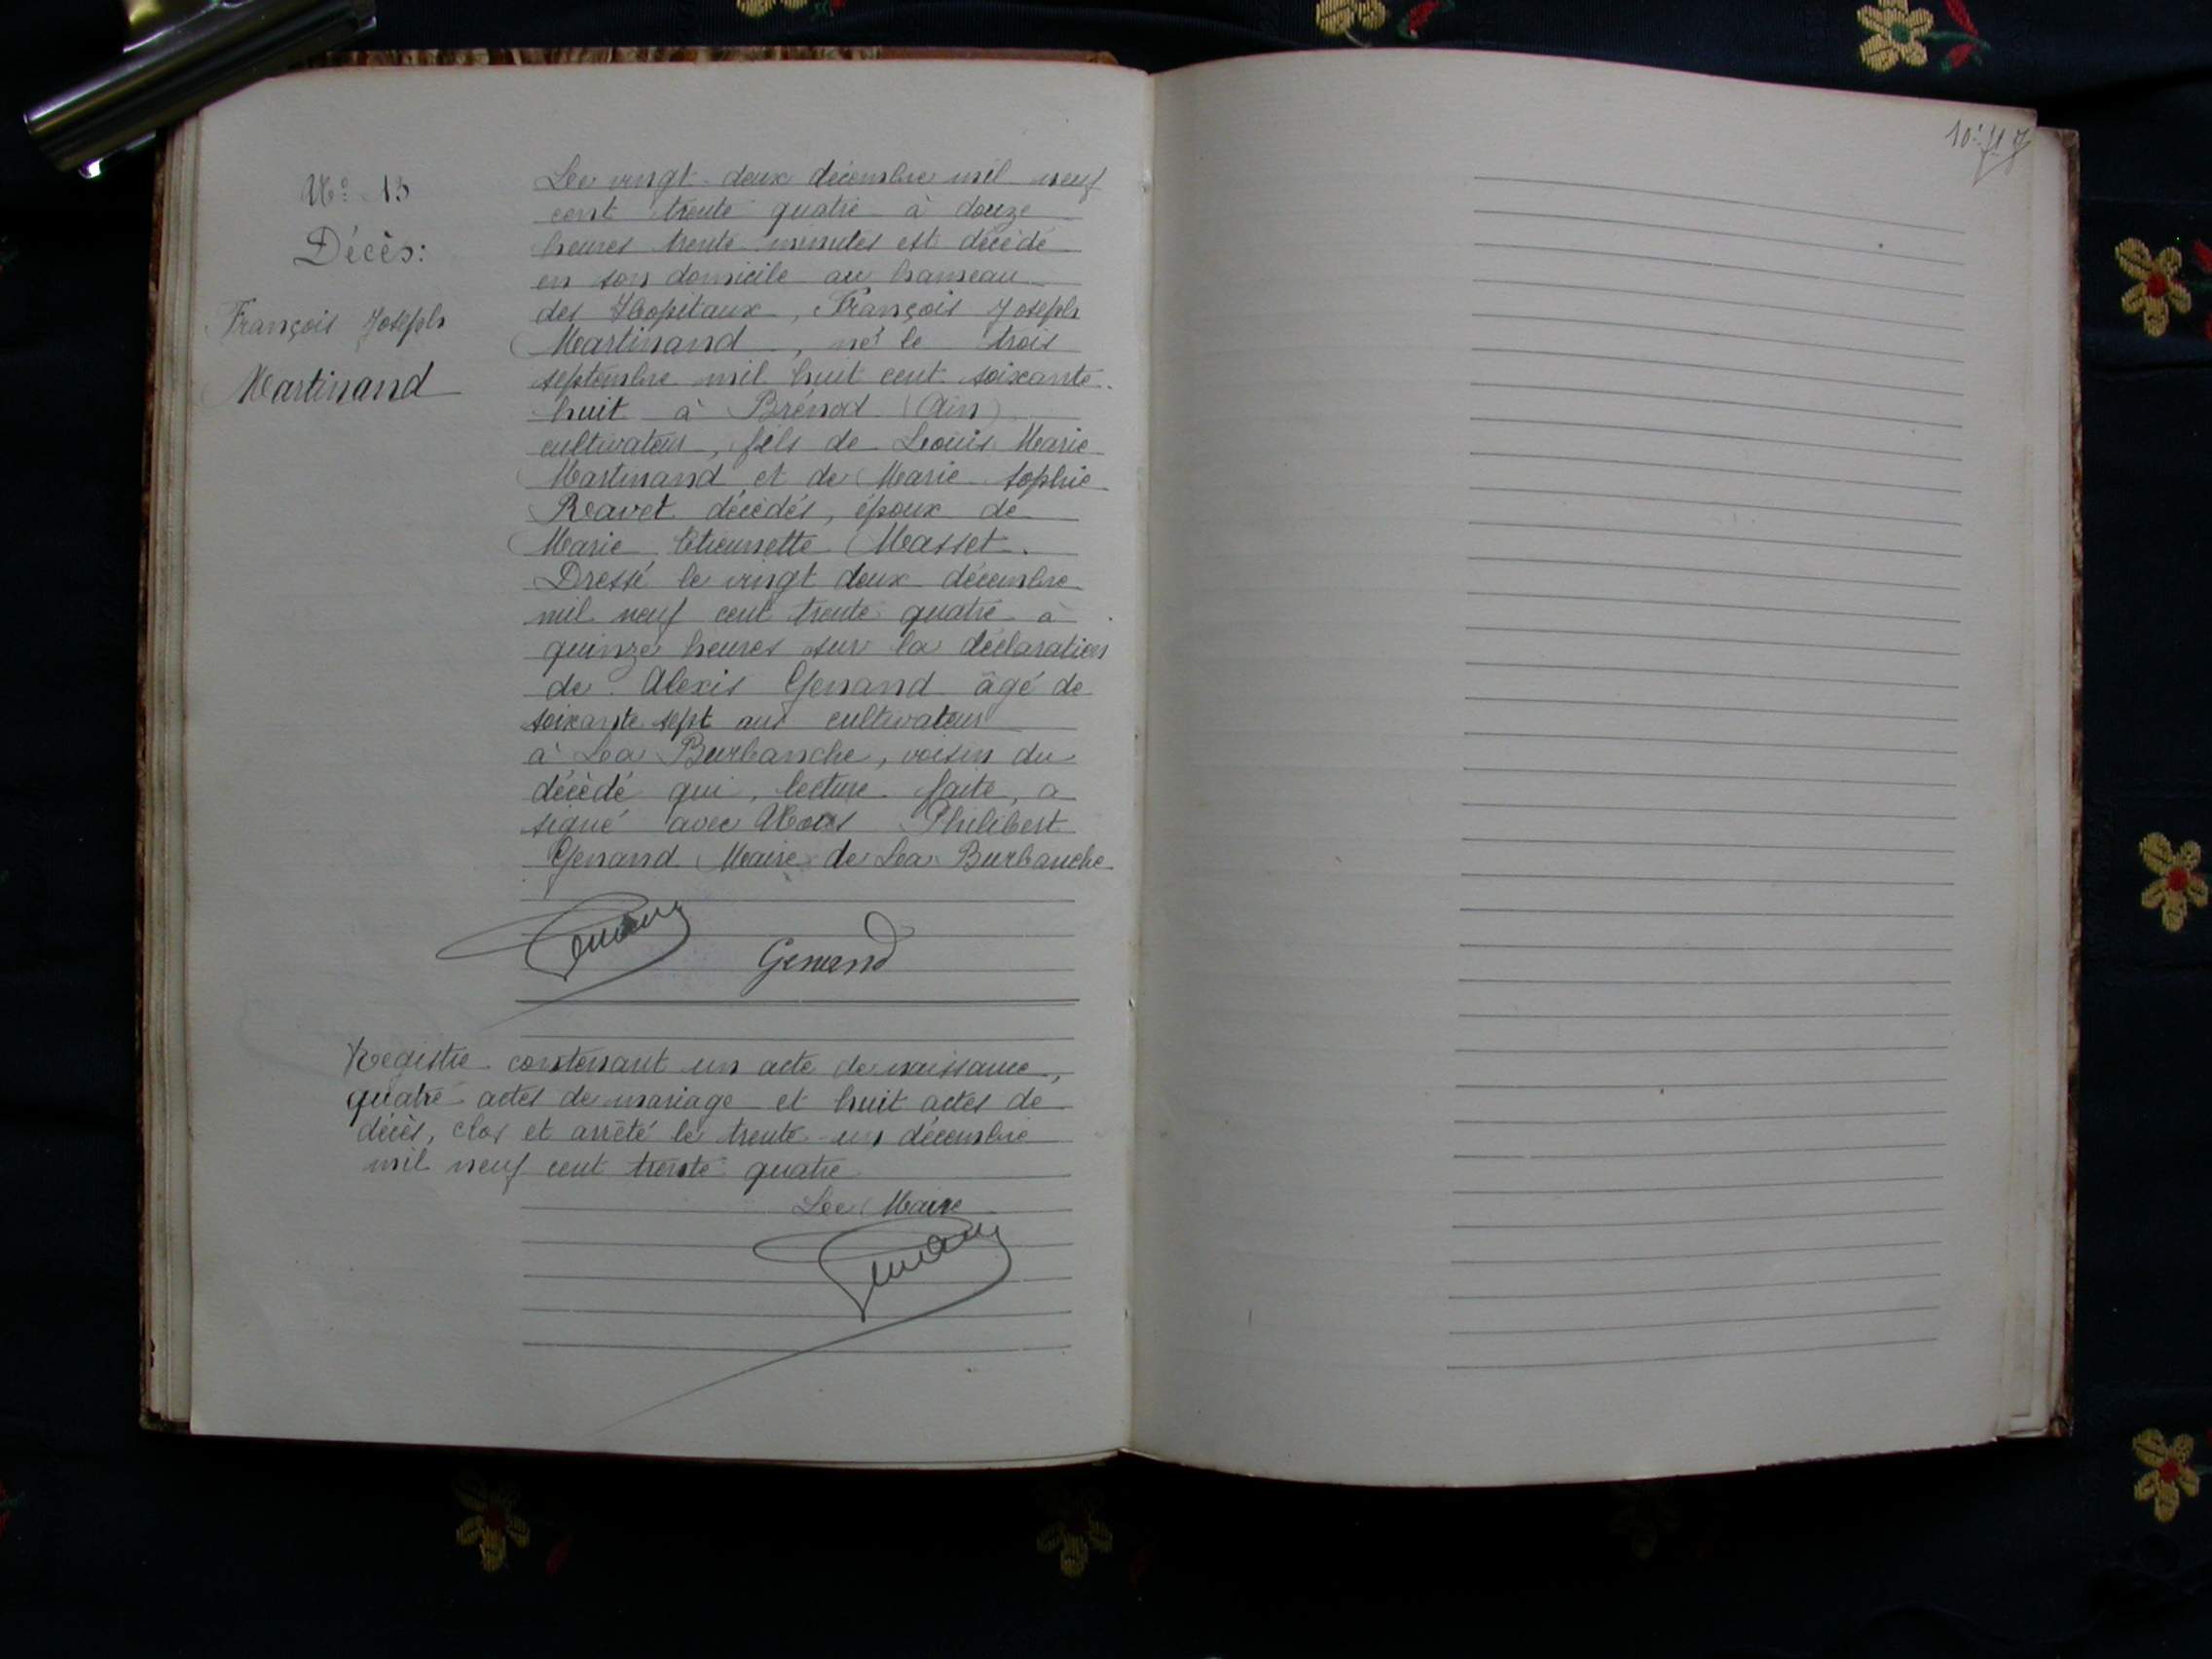 No 13
Décès:
François Joseph
Martinand
Le vingt-deux décembre mil neuf
cent trente quatre à douze
heures trente minutes est décédé
en son domicile au hameau
des Hopitaux, François Joseph
Martinand, né le trois
septembre mil huit cent soixante
huit à Brénod (Ain)
cultivateur, fils de Louis Marie
Martinand et de Marie Sophie
Ravet décédés, époux de
Marie Etiennette Masset.
Dressé le vingt deux décembre
mil neuf cent trente quatre à
quinze heures sur la déclaration
de Alexis Genand âgé de
soixante sept ans cultivateur
à La Burbanche, voisin du
décédé qui, lecture faite, a
signé avec Nous Philibert
Genand Maire de La Burbanche
Genand
Genand
Registre contenant un acte de naissance,
quatre actes de mariage et huit actes de
décès, clos et arrêté le trente un décembre
mil neuf cent trente quatre
Le Maire
Genand